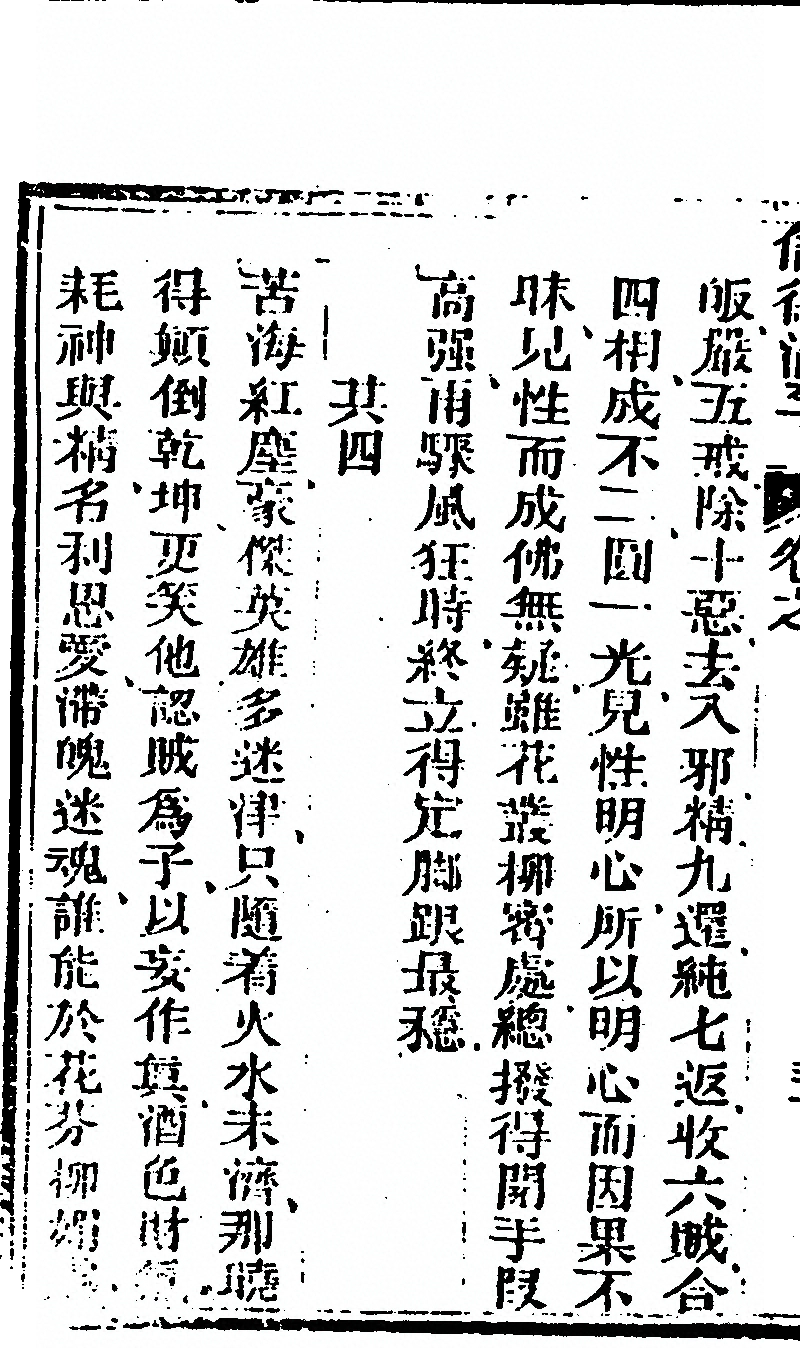 卷之
皈嚴五戒除十惡去八邪精九還純七返收六賊合
四相成不二圓一光見性明心所以明心而因果不
昧見性而成佛無疑雖花叢柳密處總撥得開手段
高强雨驟風狂時終立得定脚跟最穩
其四
苦海紅塵豪傑英雄多迷津只隨着火水未濟那曉
得顛倒乾坤更笑他認賊爲子以妄作眞酒色財氣
耗神與精名利恩愛滯魄迷魂誰能於花芬柳媚